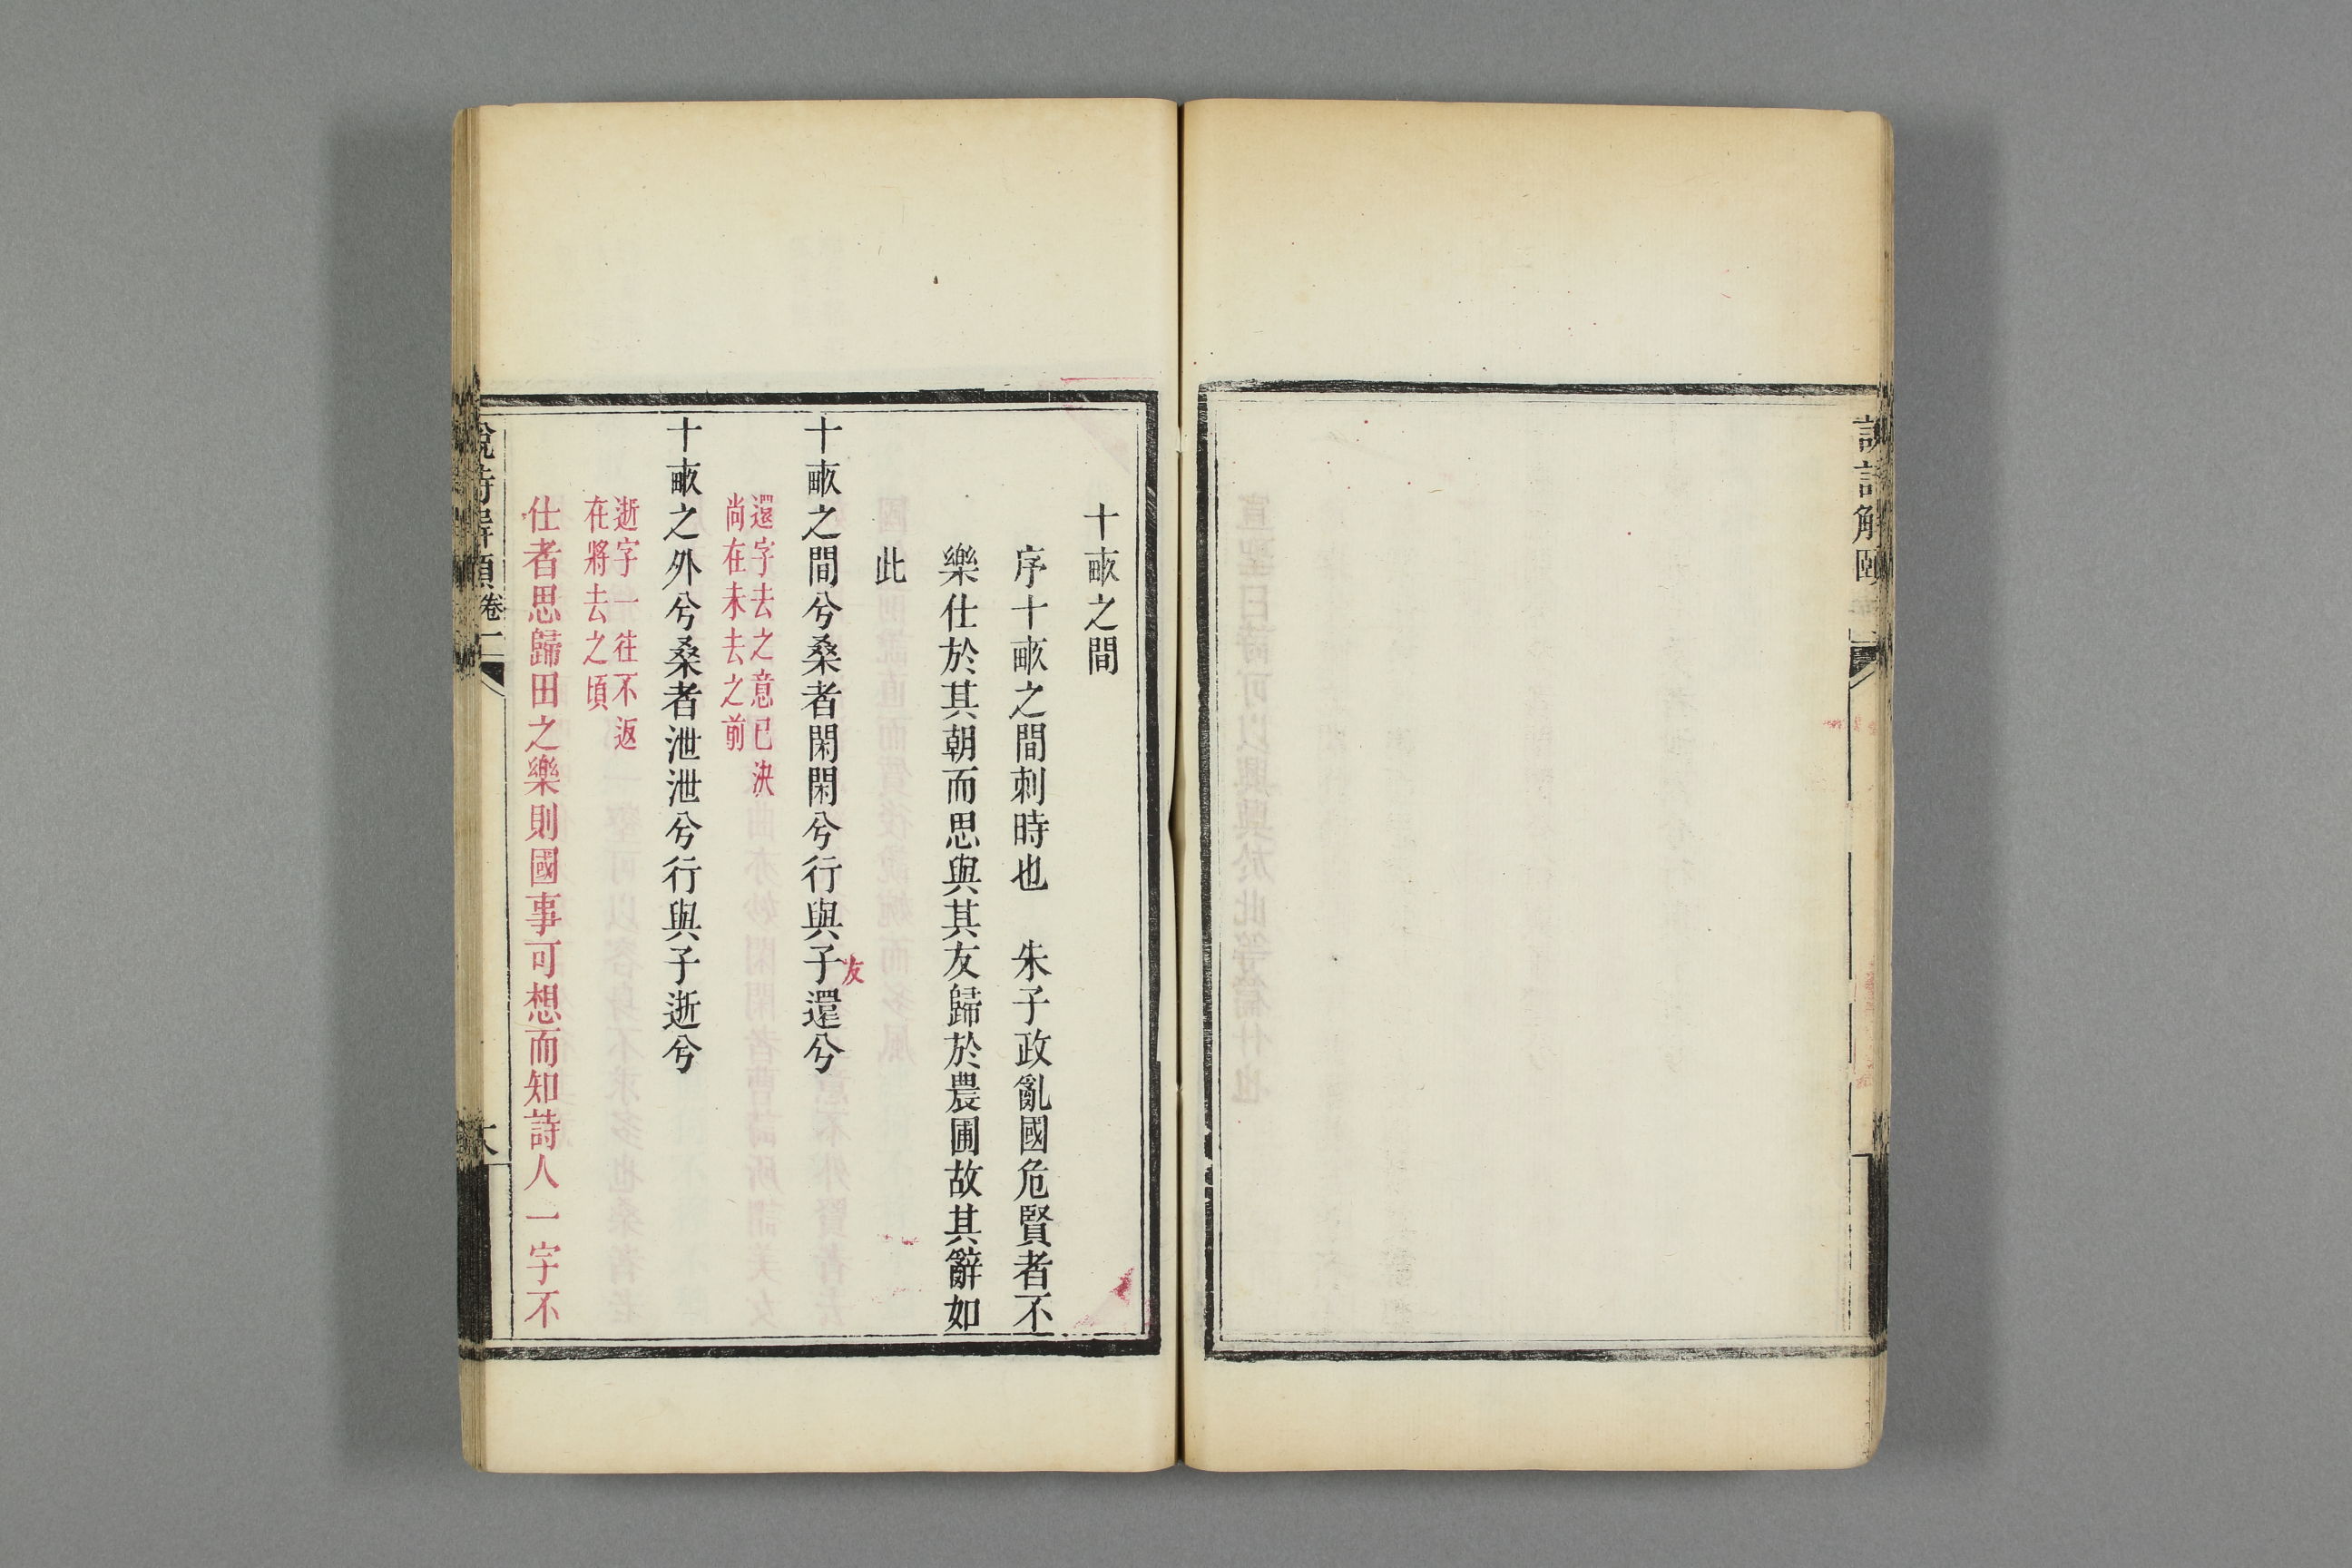 說詩解頤
十畝之間
序十畝之間刺時也　朱子政亂國危賢者不
樂仕於其朝而思與其友歸於農圃故其辭如
此
十畝之間兮桑者閑閑兮行與子還兮
友
還字去之意已決
尚在未去之前
十畝之外兮桑者泄泄兮行與子逝兮
逝字一往不返
在將去之頃
仕者思歸田之樂則國事可想而知詩人一字不
說詩解頤
卷二